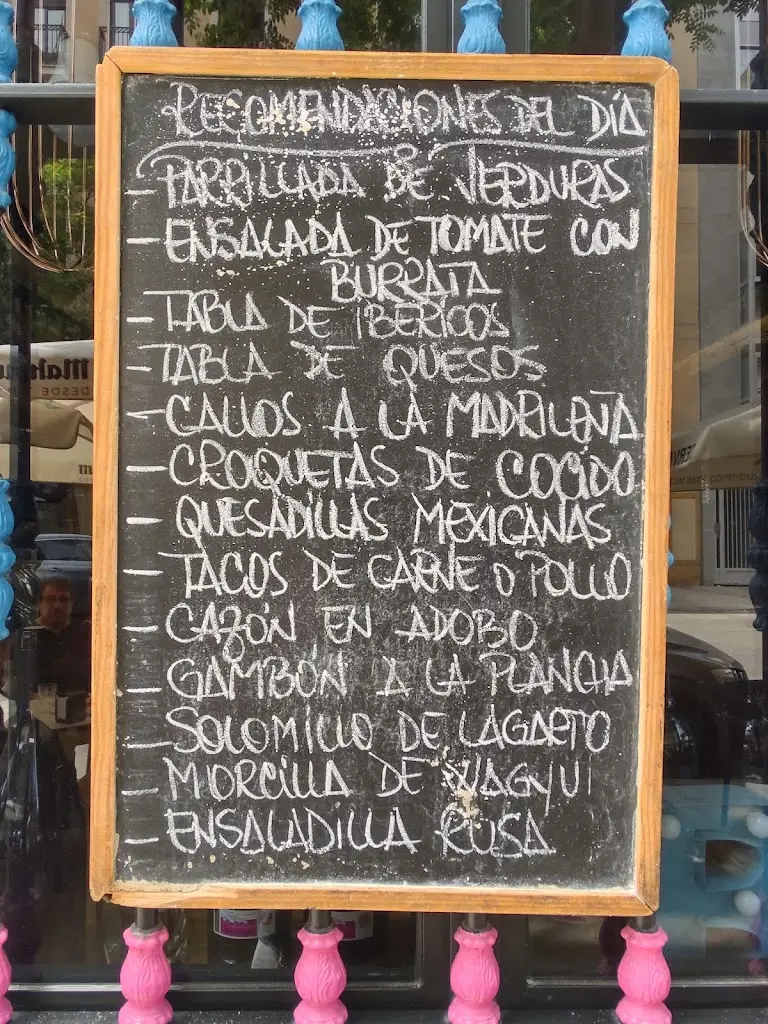 RECOMENDACIONES DEL DÍA
- PARRILLADA DE VERDURAS
- ENSALADA DE TOMATE CON
BURRATA
- TABLA DE IBERICOS
- TABLA DE QUESOS
- CALLOS A LA MADRILEÑA
- CROQUETAS DE COCIDO
- QUESADILLAS MEXICANAS
- TACOS DE CARNE O POLLO
- CAZÓN EN ADOBO
- GAMBÓN A LA PLANCHA
- SOLOMILLO DE LAGARTO
- MORCILLA DE WAGYUI
- ENSALADILLA RUSA
DESDE